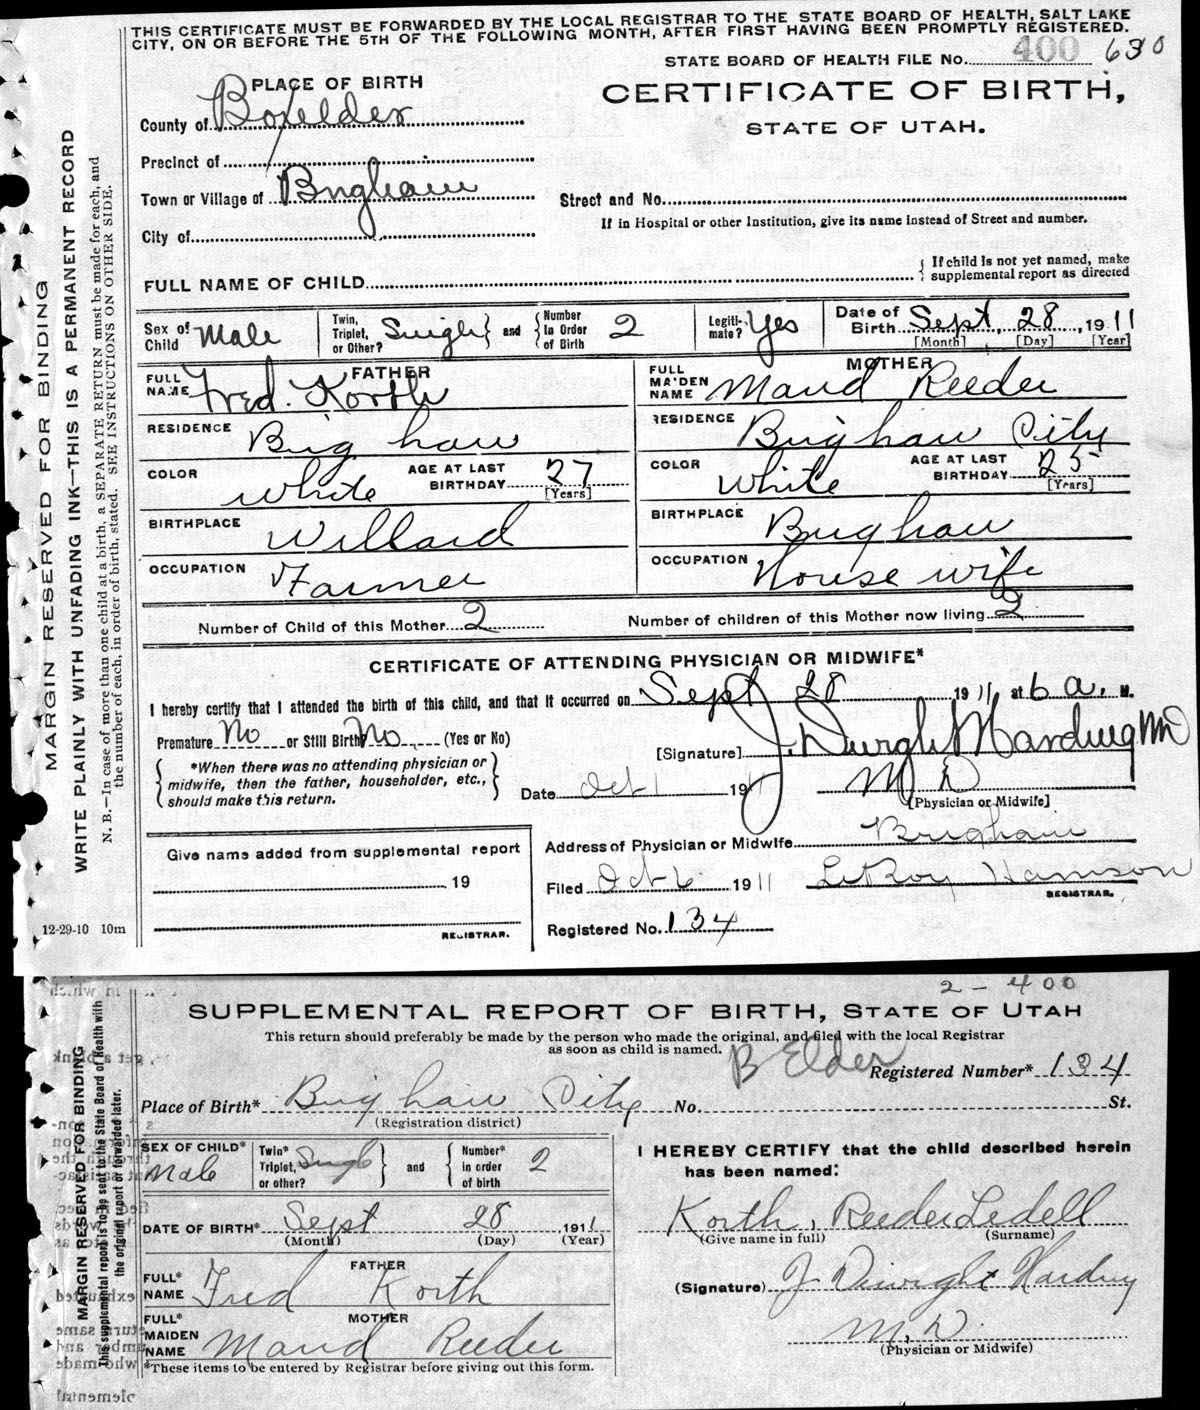 THIS CERTIFICATE MUST BE FORWARDED BY THE LOCAL REGISTRAR TO THE STATE BOARD OF HEALTH, SALT LAKE
CITY, ON OR BEFORE THE 5TH OF THE FOLLOWING MONTH, AFTER FIRST HAVING BEEN PROMPTLY REGISTERED.
STATE BOARD OF HEALTH FILE No. 400 630
PLACE OF BIRTH
CERTIFICATE OF BIRTH,
STATE OF UTAH.
County of Boxelder
Precinct of
Town or Village of Brigham
Street and No.
If in Hospital or other Institution, give its name instead of Street and number.
City of
FULL NAME OF CHILD
{ If child is not yet named, make
supplemental report as directed
Sex of Child Male
Twin, Triplet, or Other? Single } and { Number In Order of Birth 2
Legiti-mate? Yes
Date of Birth Sept 28, 1911
[Month] [Day] [Year]
FATHER
FULL NAME Fred. Korth
RESIDENCE Brigham
COLOR White AGE AT LAST BIRTHDAY 27 [Years]
BIRTHPLACE Willard
OCCUPATION Farmer
MOTHER
FULL MAIDEN NAME Maud Reeder
RESIDENCE Brigham City
COLOR White AGE AT LAST BIRTHDAY 25 [Years]
BIRTHPLACE Brigham
OCCUPATION House wife
Number of Child of this Mother 2 Number of children of this Mother now living 2
CERTIFICATE OF ATTENDING PHYSICIAN OR MIDWIFE*
I hereby certify that I attended the birth of this child, and that it occurred on Sept 28 1911 at 6 a. M.
Premature No or Still Birth No (Yes or No)
[Signature] J. Dwight Harding MD
{ *When there was no attending physician or
midwife, then the father, householder, etc.,
should make this return. }
Date Oct 1 1911 M D
[Physician or Midwife]
Address of Physician or Midwife Brigham
Give name added from supplemental report
19
REGISTRAR.
Filed Oct 6 1911 LeRoy Hamson
REGISTRAR.
Registered No. 134
12-29-10 10m
MARGIN RESERVED FOR BINDING
WRITE PLAINLY WITH UNFADING INK—THIS IS A PERMANENT RECORD
N. B.—In case of more than one child at a birth, a SEPARATE RETURN must be made for each, and
the number of each, in order of birth, stated. SEE INSTRUCTIONS ON OTHER SIDE.
2 - 400
SUPPLEMENTAL REPORT OF BIRTH, STATE OF UTAH
This return should preferably be made by the person who made the original, and filed with the local Registrar
as soon as child is named.
B Elder
Registered Number* 134
Place of Birth* Brigham City No. St.
(Registration district)
SEX OF CHILD* Male
Twin* Triplet, or other? Single } and { Number* in order of birth 2
DATE OF BIRTH* Sept 28 1911
(Month) (Day) (Year)
FATHER
FULL* NAME Fred Korth
MOTHER
FULL* MAIDEN NAME Maud Reeder
*These items to be entered by Registrar before giving out this form.
I HEREBY CERTIFY that the child described herein
has been named:
Korth, Reeder Ledell
(Give name in full) (Surname)
(Signature) J Dwight Harding
M. D.
(Physician or Midwife)
MARGIN RESERVED FOR BINDING
This supplemental report is to be sent to the State Board of Health with
the original report or forwarded later.